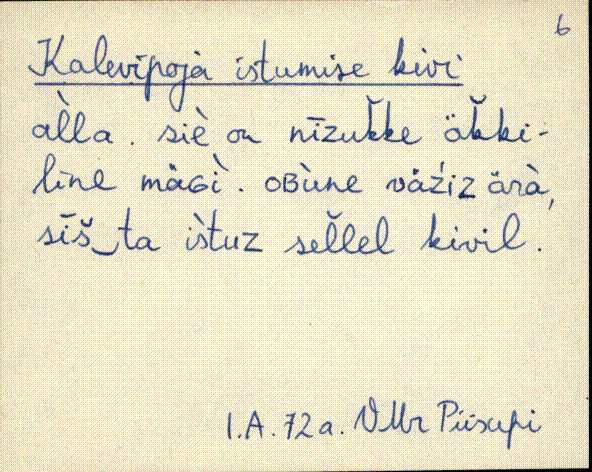 6
Kalevipojà̬ istumise kivi
àl̆la. siè on nīzuk̆ke äk̆ki-
līne mäɢì. oʙùne vä̬źiz ärà,
sīš‿ta ìstuz sel̆lel kivil.
I.A. 72 a. VMr Piisupi